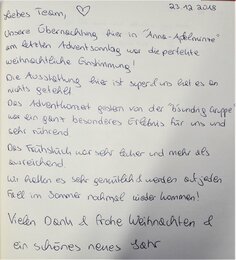 Liebes Team, ♡ 23.12.2018
Unsere Übernachtung hier in "Anna-
am letzten Adventsonntag war die perfekte
weihnachtliche Einstimmung!
Die Ausstattung hier ist super & uns hat es an
nichts gefehlt
Das Adventkonzert gestern von der Gruppe"
war ein ganz besonderes Erlebnis für uns und
sehr rührend
Das Frühstück war sehr lecker und mehr als
ausreichend
Wir hatten es sehr gemütlich & werden auf jeden
Fall im Sommer nochmal wieder kommen!
Vielen Dank & frohe Weihnachten &
ein schönes neues Jahr